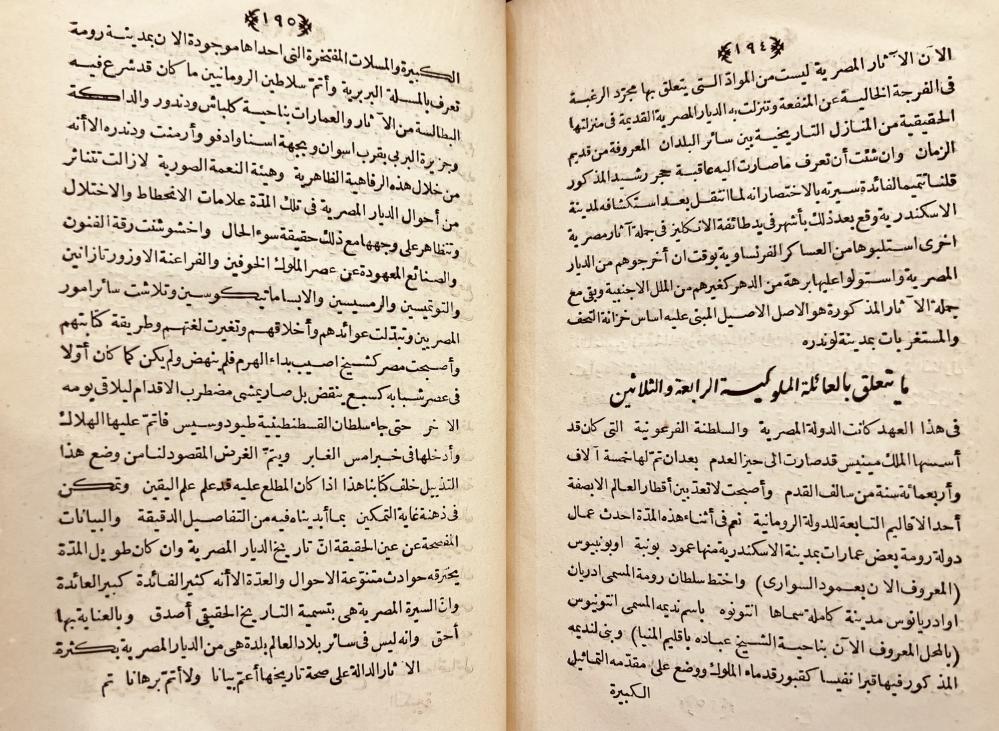 ١٩٤
الآن الآثار المصرية ليست من المواد التي يتعلق بها مجرّد الرغبة
في الفرجة الخالية عن المنفعة وتنزلت به الديار المصرية القديمة في منزلتها
الحقيقية من المنازل التاريخية بين سائر البلدان المعروفة من قديم
الزمان وان شئت أن تعرف ما صارت اليه عاقبة حجر رشيد المذكور
قلنا تتميما لفائدة سيرته بالاختصار انه لما انتقل بعد استكشافه لمدينة
الاسكندرية وقع بعد ذلك بأشهر في يد طائفة الانكليز في جملة آثار مصرية
اخرى استلبوها من العساكر الفرنساوية بوقت ان أخرجوهم من الديار
المصرية واستولوا عليها برهة من الدهر كغيرهم من الملل الاجنبية وبقي مع
جملة الآثار المذكورة هو الاصل الاصيل المبنى عليه اساس خزانة التحف
والمستغربات بمدينة لوندره
ما يتعلق بالعائلة الملوكية الرابعة والثلاثين
في هذا العهد كانت الدولة المصرية والسلطنة الفرعونية التي كان قد
أسسها الملك مينيس قد صارت الى حيز العدم بعد ان تم لها خمسة آلاف
وأربعمائة سنة من سالف القدم وأصبحت لا تعد بين أقطار العالم الا بصفة
أحد الاقاليم التابعة للدولة الرومانية نعم في أثناء هذه المدّة احدث عمال
دولة رومة بعض عمارات بمدينة الاسكندرية منها عمود بونية اوبونبيوس
(المعروف الآن بعمود السوارى) واختط سلطان رومة المسمى ادريان
او ادريانوس مدينة كاملة سماها انتونوه باسم نديمه المسمى انتونيوس
(بالمحل المعروف الآن بناحية الشيخ عباده باقليم المنيا) وبنى لنديمه
المذكور فيها قبرا نفيسا كقبور قدماء الملوك ووضع على مقدّمه التماثيل
الكبيرة
١٩٥
الكبيرة والمسلات المفتخرة التي احداها موجودة الآن بمدينة رومة
تعرف بالمسلة البربرية وأتمّ سلاطين الرومانيين ما كان قد شرع فيه
البطالسة من الآثار والعمارات بناحية كلباش ودندور والداكة
وجزيرة البربى بقرب اسوان وبجهة اسنا وادفو وأرمنت ودندره الا أنه
من خلال هذه الرفاهية الظاهرية وهيئة النعمة الصورية لا زالت تتناثر
من أحوال الديار المصرية في تلك المدّة علامات الانحطاط والاختلال
وتتظاهر على وجهها مع ذلك حقيقة سوء الحال واخشوشنت رقة الفنون
والصنائع المعهودة عن عصر الملوك الخوفين والفراعنة الاوزورتازانين
والتوتميين والرمسيسين والابساماتيكوسين وتلاشت سائر امور
المصريين وتبدّلت عوائدهم وأخلاقهم وتغيرت لغتهم وطريقة كتابتهم
وأصبحت مصر كشيخ اصيب بداء الهرم فلم ينهض ولم يكن كما كان أوّلا
في عصر شبابه كسبع ينقض بل صار يمشى مضطرب الاقدام ليلاقى يومه
الآخر حتى جاء سلطان القسطنطينية طيودوسيس فاتمّ عليها الهلاك
وأدخلها في خبر امس الغابر ويتمّ الغرض المقصود لنا من وضع هذا
التذييل خلف كتابنا هذا اذا كان المطلع عليه قد علم علم اليقين وتمكن
في ذهنه غاية التمكين بما أبديناه فيه من التفاصيل الدقيقة والبيانات
المفصحة عن عين الحقيقة انّ تاريخ الديار المصرية وان كان طويل المدّة
يخترقه حوادث متنوّعة الاحوال والعدّة الا أنه كثير الفائدة كبير العائدة
وانّ السيرة المصرية هي بتسمية التاريخ الحقيقي أصدق وبالعناية بها
أحق وانه ليس في سائر بلاد العالم بلدة هي من الديار المصرية بكثرة
الآثار الدالة على صحة تاريخها أعم بيانا ولا أتمّ برهانا تم